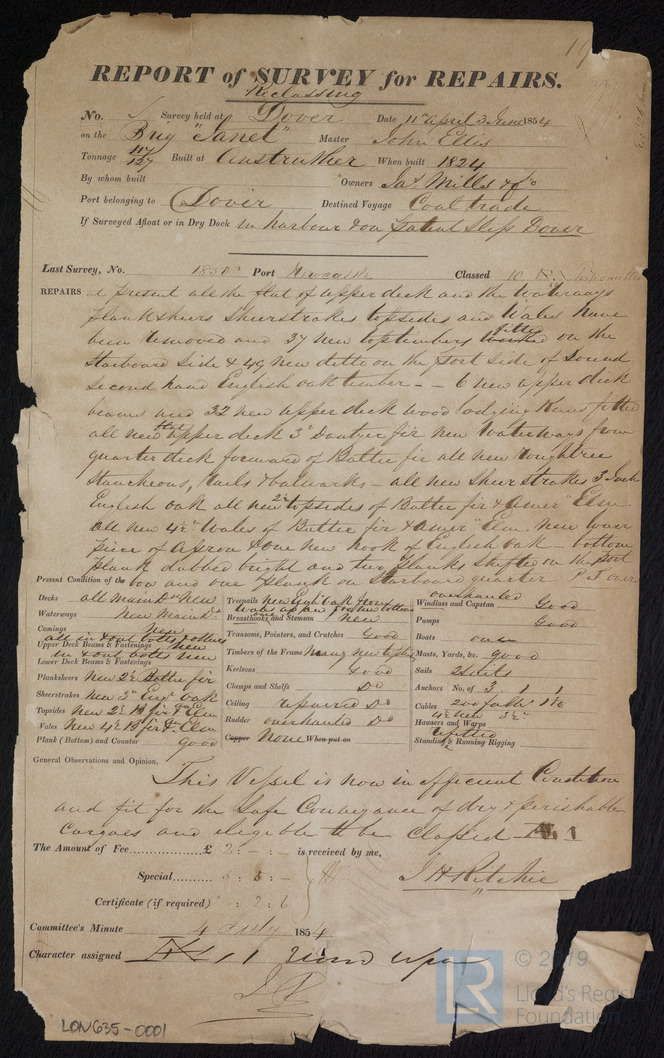 19
REPORT of SURVEY for REPAIRS.
Reclassing
No. Survey held at Dover Date 11th April 3 June 1854
on the Brig "Janet" Master John Ellis
Tonnage 117 127 Built at Anstruther When built 1824
By whom built Owners Jas Mills & Co
Port belonging to Dover Destined Voyage Coal trade
If Surveyed Afloat or in Dry Dock in harbour & on Patent Slip Dover
Last Survey, No. 1850 Port Newcastle Classed 10
REPAIRS at present all the flat of upper deck and the Waterways
Plankshears Sheerstrakes topsides and Wales have
been removed and 37 new toptimbers fitted on the
Starboard Side & 49 new ditto on the Port Side of Sound
Second hand English oak timber - - 6 new upper deck
beams and 32 new upper deck wood lodging Knees fitted
all new flat upper deck 3" Dantzic fir new Waterways from
quarter deck forward of Baltic fir all new roughtree
Stancheons, Rails & bulwarks - all new Sheerstrakes 3 Inch
English oak all new 2½ topsides of Baltic fir & Amer" Elm
all new 4½" Wales of Baltic fir & Amer" Elm new lower
piece of Apron & one new hook of English oak bottom
plank dubbed bright and two planks shifted on the Port
bow and one plank on Starboard quarter P.T over
Present Condition of the
Decks all maindk New
Waterways New Maindk
Comings New
all in & out bolts & others
Upper Deck Beams & Fastenings New
in & out bolts new
Lower Deck Beams & Fastenings
Plansheers New 2½ Baltic fir
Sheerstrakes New 3" Engl oak
Topsides New 2½ B fir and Elm
Wales New 4½ B fir & A. Elm
Plank (Bottom) and Counter good
Treenails New Engl oak from
Wales up and from bottom
Breasthooks and Stemson one New
Transoms, Pointers, and Crutches Good
Timbers of the Frame Many new topthrs
Keelsons Good
Clamps and Shelfs Do
Ceiling repaired Do
Rudder overhauled Do
Copper None When put on
overhauled
Windlass and Capstan Good
Pumps Good
Boats one
Masts, Yards, &c. good
Sails 2 Suits
Anchors No. of 3 1 1
Cables 200 faths 1⅛
Hawsers and Warps
Standing & Running Rigging refitted
General Observations and Opinion,
This Vessel is now in efficient Condition
and fit for the Safe Conveyance of dry & perishable
Cargoes and eligible to be Classed Æ 1
The Amount of Fee £ 2 : - : - is received by me,
Special 5 : 5 : -
Certificate (if required) : 2 : 6
J H Ritchie
Committee's Minute 4 July 1854
Character assigned Æ 1
LON635-0001
LR
© 2019
Lloyd's Register
Foundation